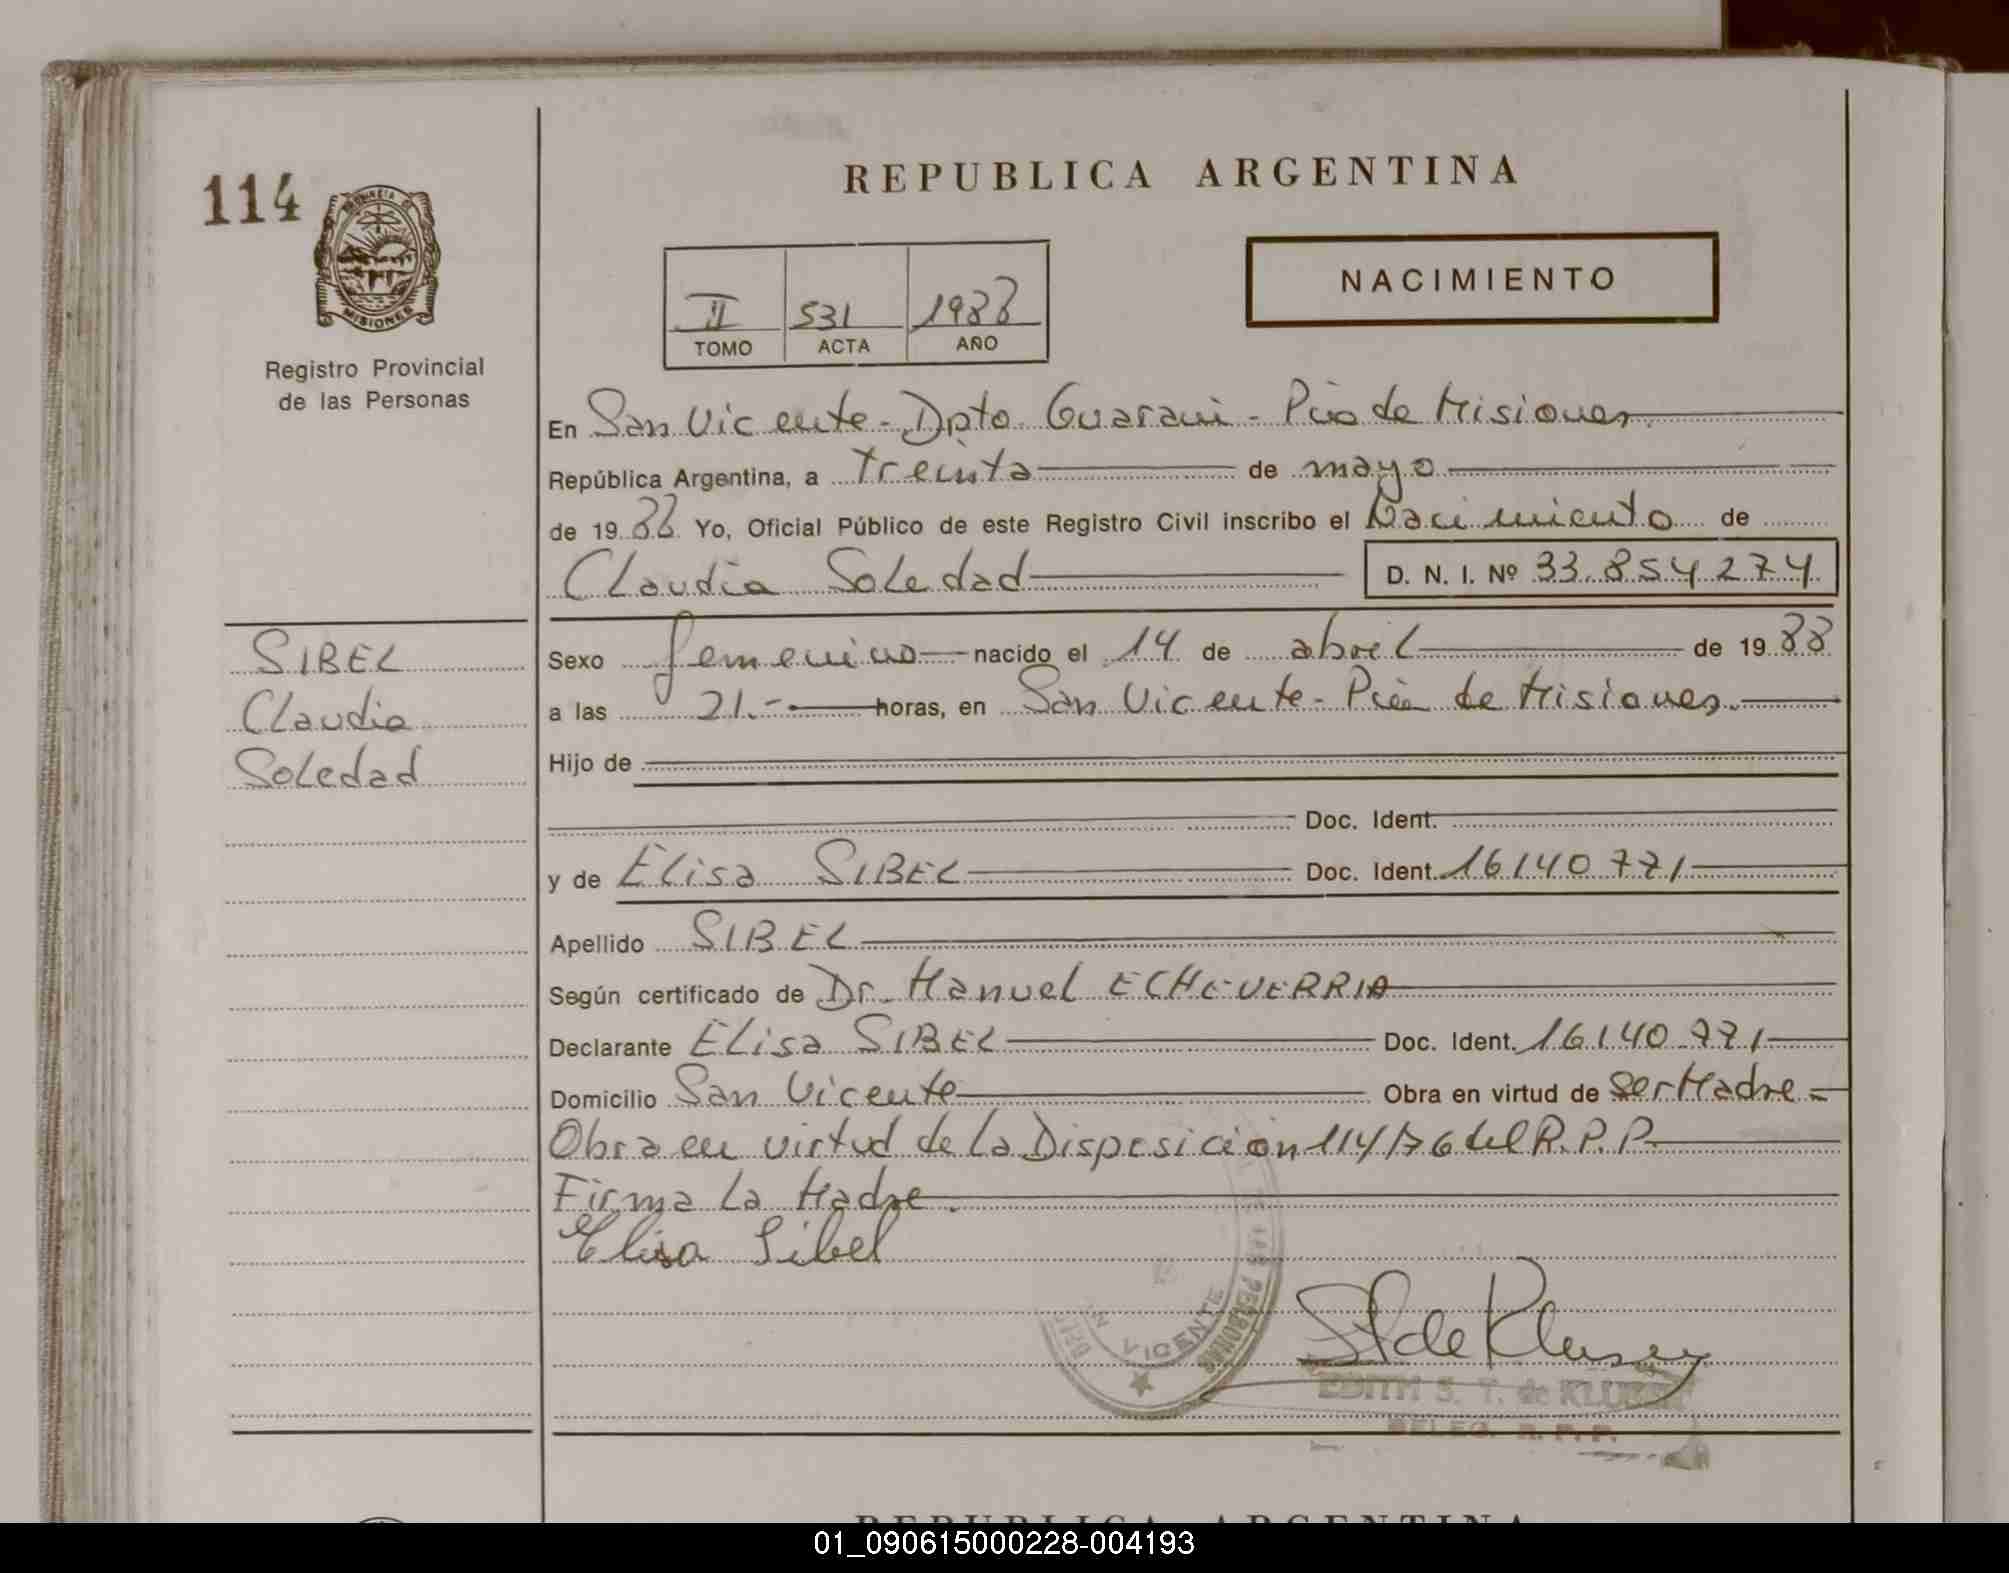 REPUBLICA ARGENTINA
114
PROVINCIA DE
MISIONES
Registro Provincial
de las Personas
NACIMIENTO
II 531 1988
TOMO ACTA AÑO
En San Vicente - Dpto. Guarani - Pcia de Misiones
República Argentina, a treinta de mayo
de 1988 Yo, Oficial Público de este Registro Civil inscribo el Nacimiento de
Claudia Soledad D. N. I. Nº 33.854274
SIBEL
Claudia
Soledad
Sexo femenino nacido el 14 de abril de 1988
a las 21.- horas, en San Vicente - Pcia de Misiones.
Hijo de
Doc. Ident.
y de Elisa SIBEL Doc. Ident. 16140771
Apellido SIBEL
Según certificado de Dr. Manuel ECHEVERRIA
Declarante Elisa SIBEL Doc. Ident. 16140771
Domicilio San Vicente Obra en virtud de ser Madre =
Obra en virtud de la Disposición 114/76 del R.P.P.
Firma la Madre.
Elisa Sibel
VICENTE
EDITH S. T. de KLUSEN
DELEG. R. P. P.
REPUBLICA ARGENTINA
01_090615000228-004193